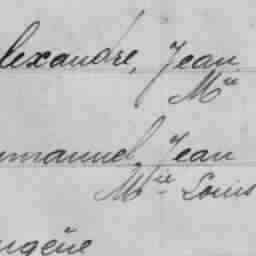 lexandre, Jean
Mie
mmanuel, Jean
Mie Louis
ugène